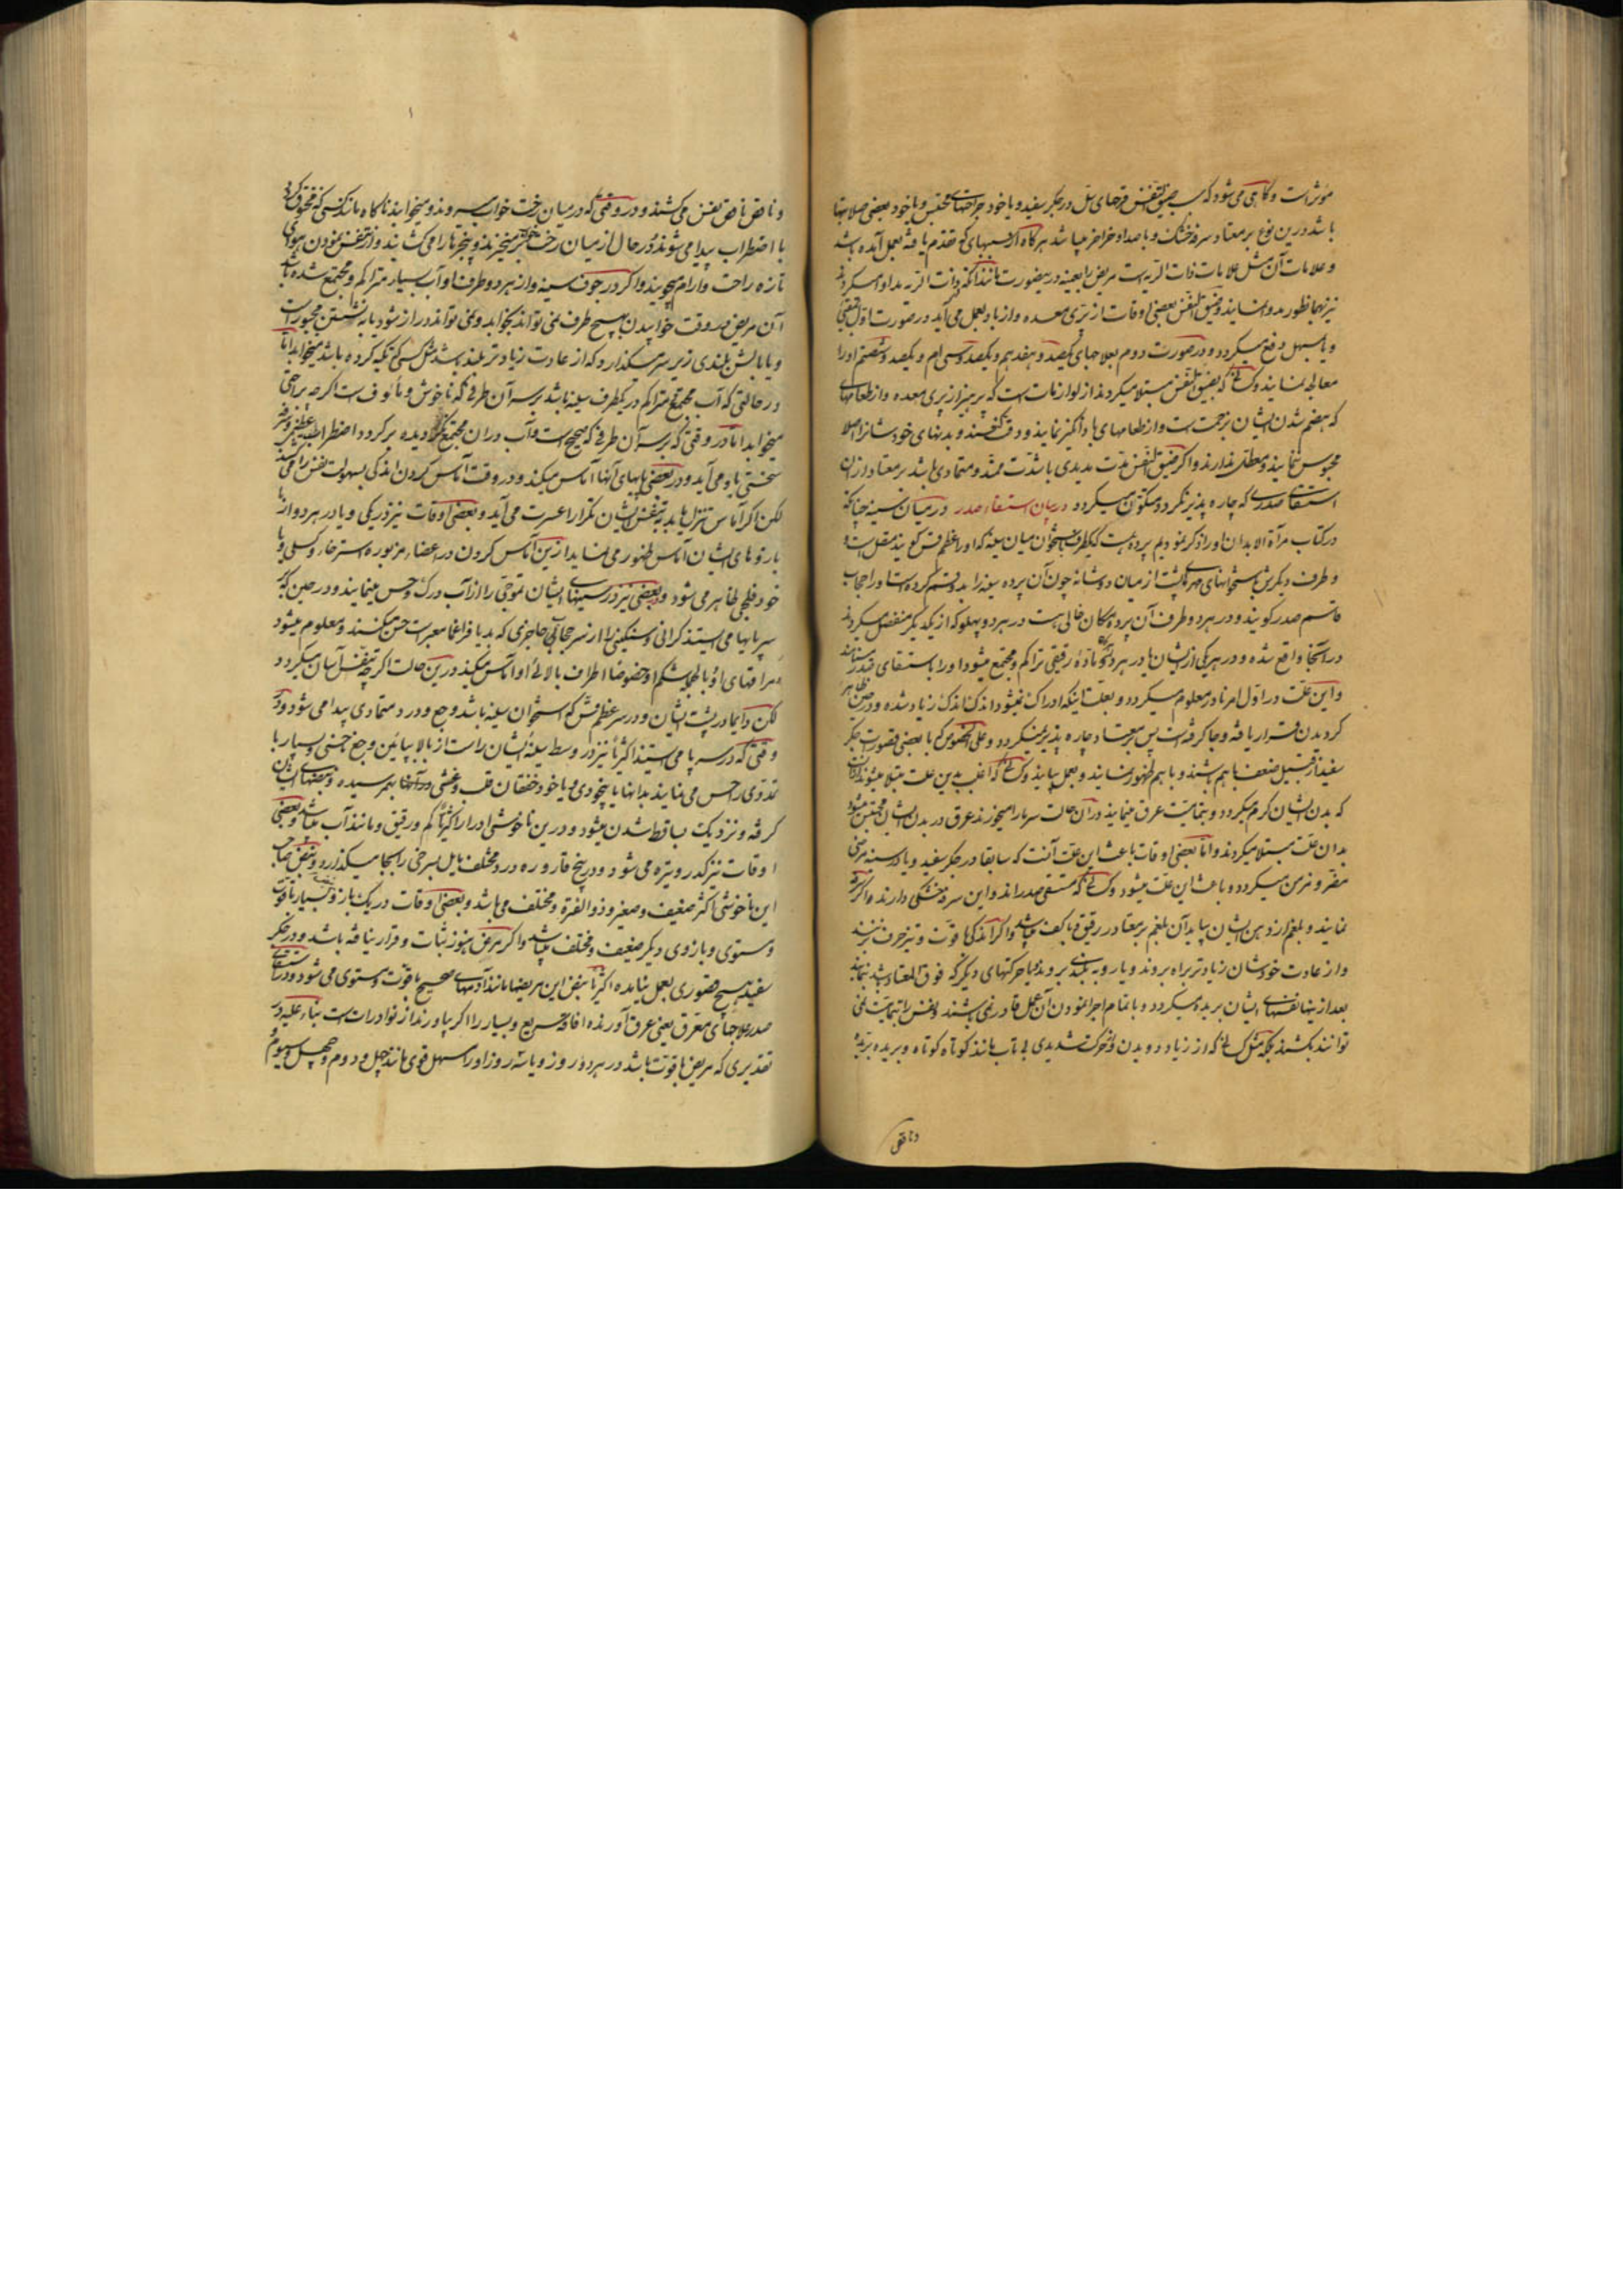 مؤثر است و کاهی می شود که سبب ضیق النفس قرحهای سل در جکر سفید و یا خود جراحتهای محتبس و یا خود بعضی صلابتها
باشد درین نوع بر معتاد سرفه خشک و با صدا و خراخر میباشد هرکاه از سببهای که تقدم یافته بعمل آمده باشد
و علامات آن مثل علامات ذات الریه است مریض را بعینه درینصورت مانند آنکه ذات الریه مداوا میکردند
نیز بهمانطور مدوا نمایند و ضیق النفس بعضی اوقات از پری معده و از باد بعمل می آید در صورت اول بقیئی
و یا مسهل دفع میکردد و در صورت دوم بعلاجهای یکصد و هفدهم و یکصد و سی ام و یکصد و شصتم او را
معالجه نمایند و کسانی که بضیق النفس مبتلا میکردند از لوازمات است که پرهیز از پری معده و از طعامهای
که هضم شدن ایشان بزحمت است و از طعامهای باد انکیز نمایند و دقت کنند و بدنهای خودشانرا اصلا
محبوس ننمایند و معطل نذارند و اکر ضیق النفس مدت مدیدی با شدت ممتد و متمادی باشد بر معتاد از ان
استسقای صدری که چاره پذیر نکردد متکون میکردد در بیان استسقاء صدر در میان سینه چنانکه
در کتاب مرآة الابدان او را ذکر نمودیم پرده هست که یکطرفش باستخوان میان سینه که او را عظم قس کویند متصل است و
و طرف دیکرش باستخوانهای مهره پشت از میان دو شانه چون آن پرده سینه را بدو قسم کرده است او را حجاب
قاسم صدر کویند و در هر دو طرف آن پرده مکان خالی هست در هر دو پهلو که از یکدیکر منفصل میکردند
در آنجا واقع شده و در هر یکی از ایشان یا در هر دو ماده رقیقی تراکم و مجتمع میشود او را باستسقای صدر میتانند
و این علت در اول امر نادر معلوم میکردد و بعلت اینکه ادراک نمیشود اندک اندک زیاد شده و در حین ظاهر
کردیدن قرار یافته و جا کرفته است پس بر معتاد چاره پذیر نمیکردد و علی الخصوص که با بعضی قصورات جکر
سفید از قبیل ضعف باهم باشند و باهم ظهور نمایند و بعمل بیایند و کسانی که اغلب بدین علت مبتلا میشوند آنانند
که بدن ایشان کرم میکردد و بتمامیت عرق مینمایند در آن حالت سرما میخورند عرق در بدن ایشان محتبس میشود
بدان علت مبتلا میکردند و اما بعضی اوقات باعث این علت آنست که سابقا در جکر سفید و یا در سینه مرضی
مقر و مزمن میکردد و باعث این علت میشود و کسانی که مستسقی صدر اند و این سرفه خشکی دارند و اکر سرفه
نمایند و بلغم از دهن ایشان بیاید آن بلغم بر معتاد رقیق و با کف میباشد و اکر اندکی با قوت و تیز حرف بزنند
و از عادت خودشان زیادتر براه بروند و یا رو به بلندی بروند و یا حرکتهای دیکر که فوق المعتاد باشد بنمایند
بعد از آنها نفسهای ایشان بریده میکردد و با تمام اجرا نمودن آن عمل قادر نمی باشند و نفس را بتمامیت نمی
توانند بکشند بلکه مثل کسانی که از زیاد دویدن و حرکت شدیدی بی تاب مانند کوتاه کوتاه و بریده بریده
و ناقص
و ناقص ناقص نفس می کشند و در وقتی که در میان رخت خواب میروند و میخوابند ناکاه مانند کسی که مخنوق کردد
با اضطراب بیدار می شوند و در حال از میان رخت خواب بر میخیزند و پنجره ها را می کشایند و از تنفس نمودن هوای
تازه راحت و ارام میجویند و اکر در جوف سینه و از هر دو طرف او آب بسیار متراکم و مجتمع شده باشد
آن مریض در وقت خوابیدن بهیچ طرف نمی تواند بخوابد و نمی تواند دراز شود یا به نشستن مجبور است
و یا بالش بلندی زیر سر میکذارد که از عادت زیادتر بلند باشد مثل کسی که تکیه کرده باشد میخوابد اما
در حالتی که آب مجتمع متراکم در یکطرف سینه باشد بر سر آن طرفی که ناخوش و مأئوف است اکرچه براحتی
میخوابد اما در وقتی که بر سر آن طرفی که صحیح است و آب در ان مجتمع نکردیده بر کردد اضطراب عظیم و سرفه
سختی باو می آید و در بعضی پایهای آنها آماس میکند و در وقت آماس کردن اندکی بسهولت نفس را می کشند
لکن اکر آماس تنزل یابد به تنفس ایشان تکرارا عسرت می آید و بعضی اوقات نیز در یکی و یا در هر دو از
بازوهای ایشان آماس ظهور می نماید ازین آماس کردن در اعضاء مزبوره استرخاء و کسلی و یا
خود فلجی ظاهر می شود و بعضی نیز در سینهای ایشان تموجی را از آب درک و حس مینمایند و در حینی که
سر پایها می ایستند کرانی و سنکینی را از سر حجابی حاجزی که بدیافراغما معبر است حس میکنند و معلوم میشود
مراقهای او یا لحمهای شکم او خصوصا اطراف بالائی او آماس میکند درین حالت اکرچه تنفس آسان میکردد
لکن دایما در پشت ایشان و در سر عظم قس که استخوان سینه باشد وجع و درد متمادی پیدا می شود و در
وقتی که در سر پا می ایستند اکثریا نیز در وسط سینه ایشان راست از بالا بپائین وجع جنبی و بسیار با
تدوی را حس می نمایند بدانها یا بیخودی و یا خود خفقان قلب و غشی در آنها بهم رسیده و نبضهای ایشان
کرفته و نزدیک بساقط شدن میشود و درین ناخوشی ادرار اکثریا کم و رقیق و مانند آب میباشد و بعضی
اوقات نیز کدر و تیره می شود و در بیخ قاروره درد مختلف مایل بسرخی را بجا میکذارد و نبض صاحب
این ناخوشی اکثر ضعیف و صغیر و ذو الفترة و مختلف می باشد و بعضی اوقات در یک بازو بسیار با قوت
و مستوی و بازوی دیکر ضعیف و مختلف میباشد و اکر مرض هنوز ثبات و قرار نیافته باشد و در جکر
سفید هیچ قصوری بعمل نیامده اکثریا نبض این مریضها مانند آدمهای صحیح با قوت و مستوی می شود و در استسقای
صدر علاجهای معرق یعنی عرق آورنده افاقه سریع و بسیار را اکر بیاورند از نوادرات است بناء علیه در
تقدیری که مریض با قوت باشد در هر دو روز و یا سه روز او را مسهل قوی مانند چهل و دوم و چهل و سیوم